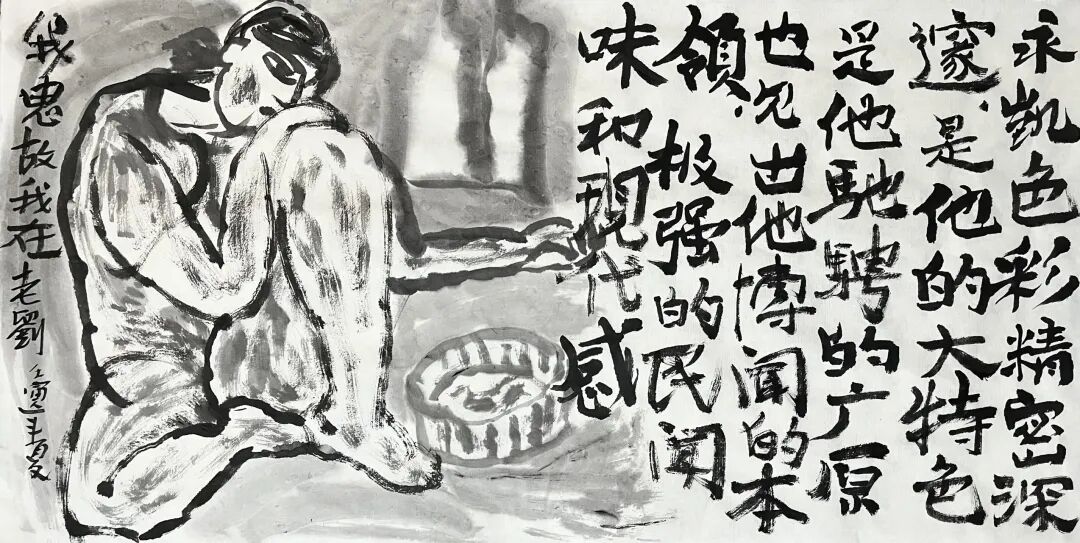 永凯色彩精密深
邃.是他的大特色
是他馳騁的广原
也见出他博闻的本
領.极强的民闻
味和現代感
我思故我在 老劉